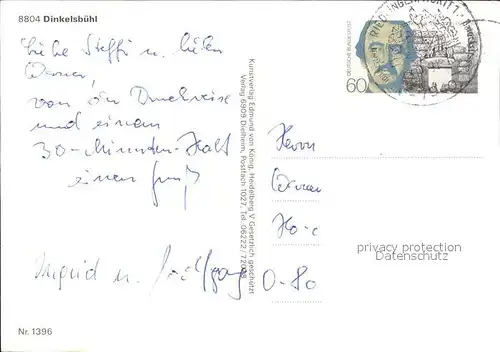 8804 Dinkelsbühl
Liebe Steffi u. lieber
Werner,
von der Durchreise
und einem
30-Minuten-Halt
einen Gruß
Ingrid u. Wolfgang
Nr. 1396
Kunstverlag Edmund von König, Heidelberg V Gesetzlich geschützt
Verlag 6909 Dielheim, Postfach 1027, Tel. 06222/
DEUTSCHE BUNDESPOST
60
RIEDLINGEN, WÜRTT
Herrn
Werner
O-80
privacy protection
Datenschutz